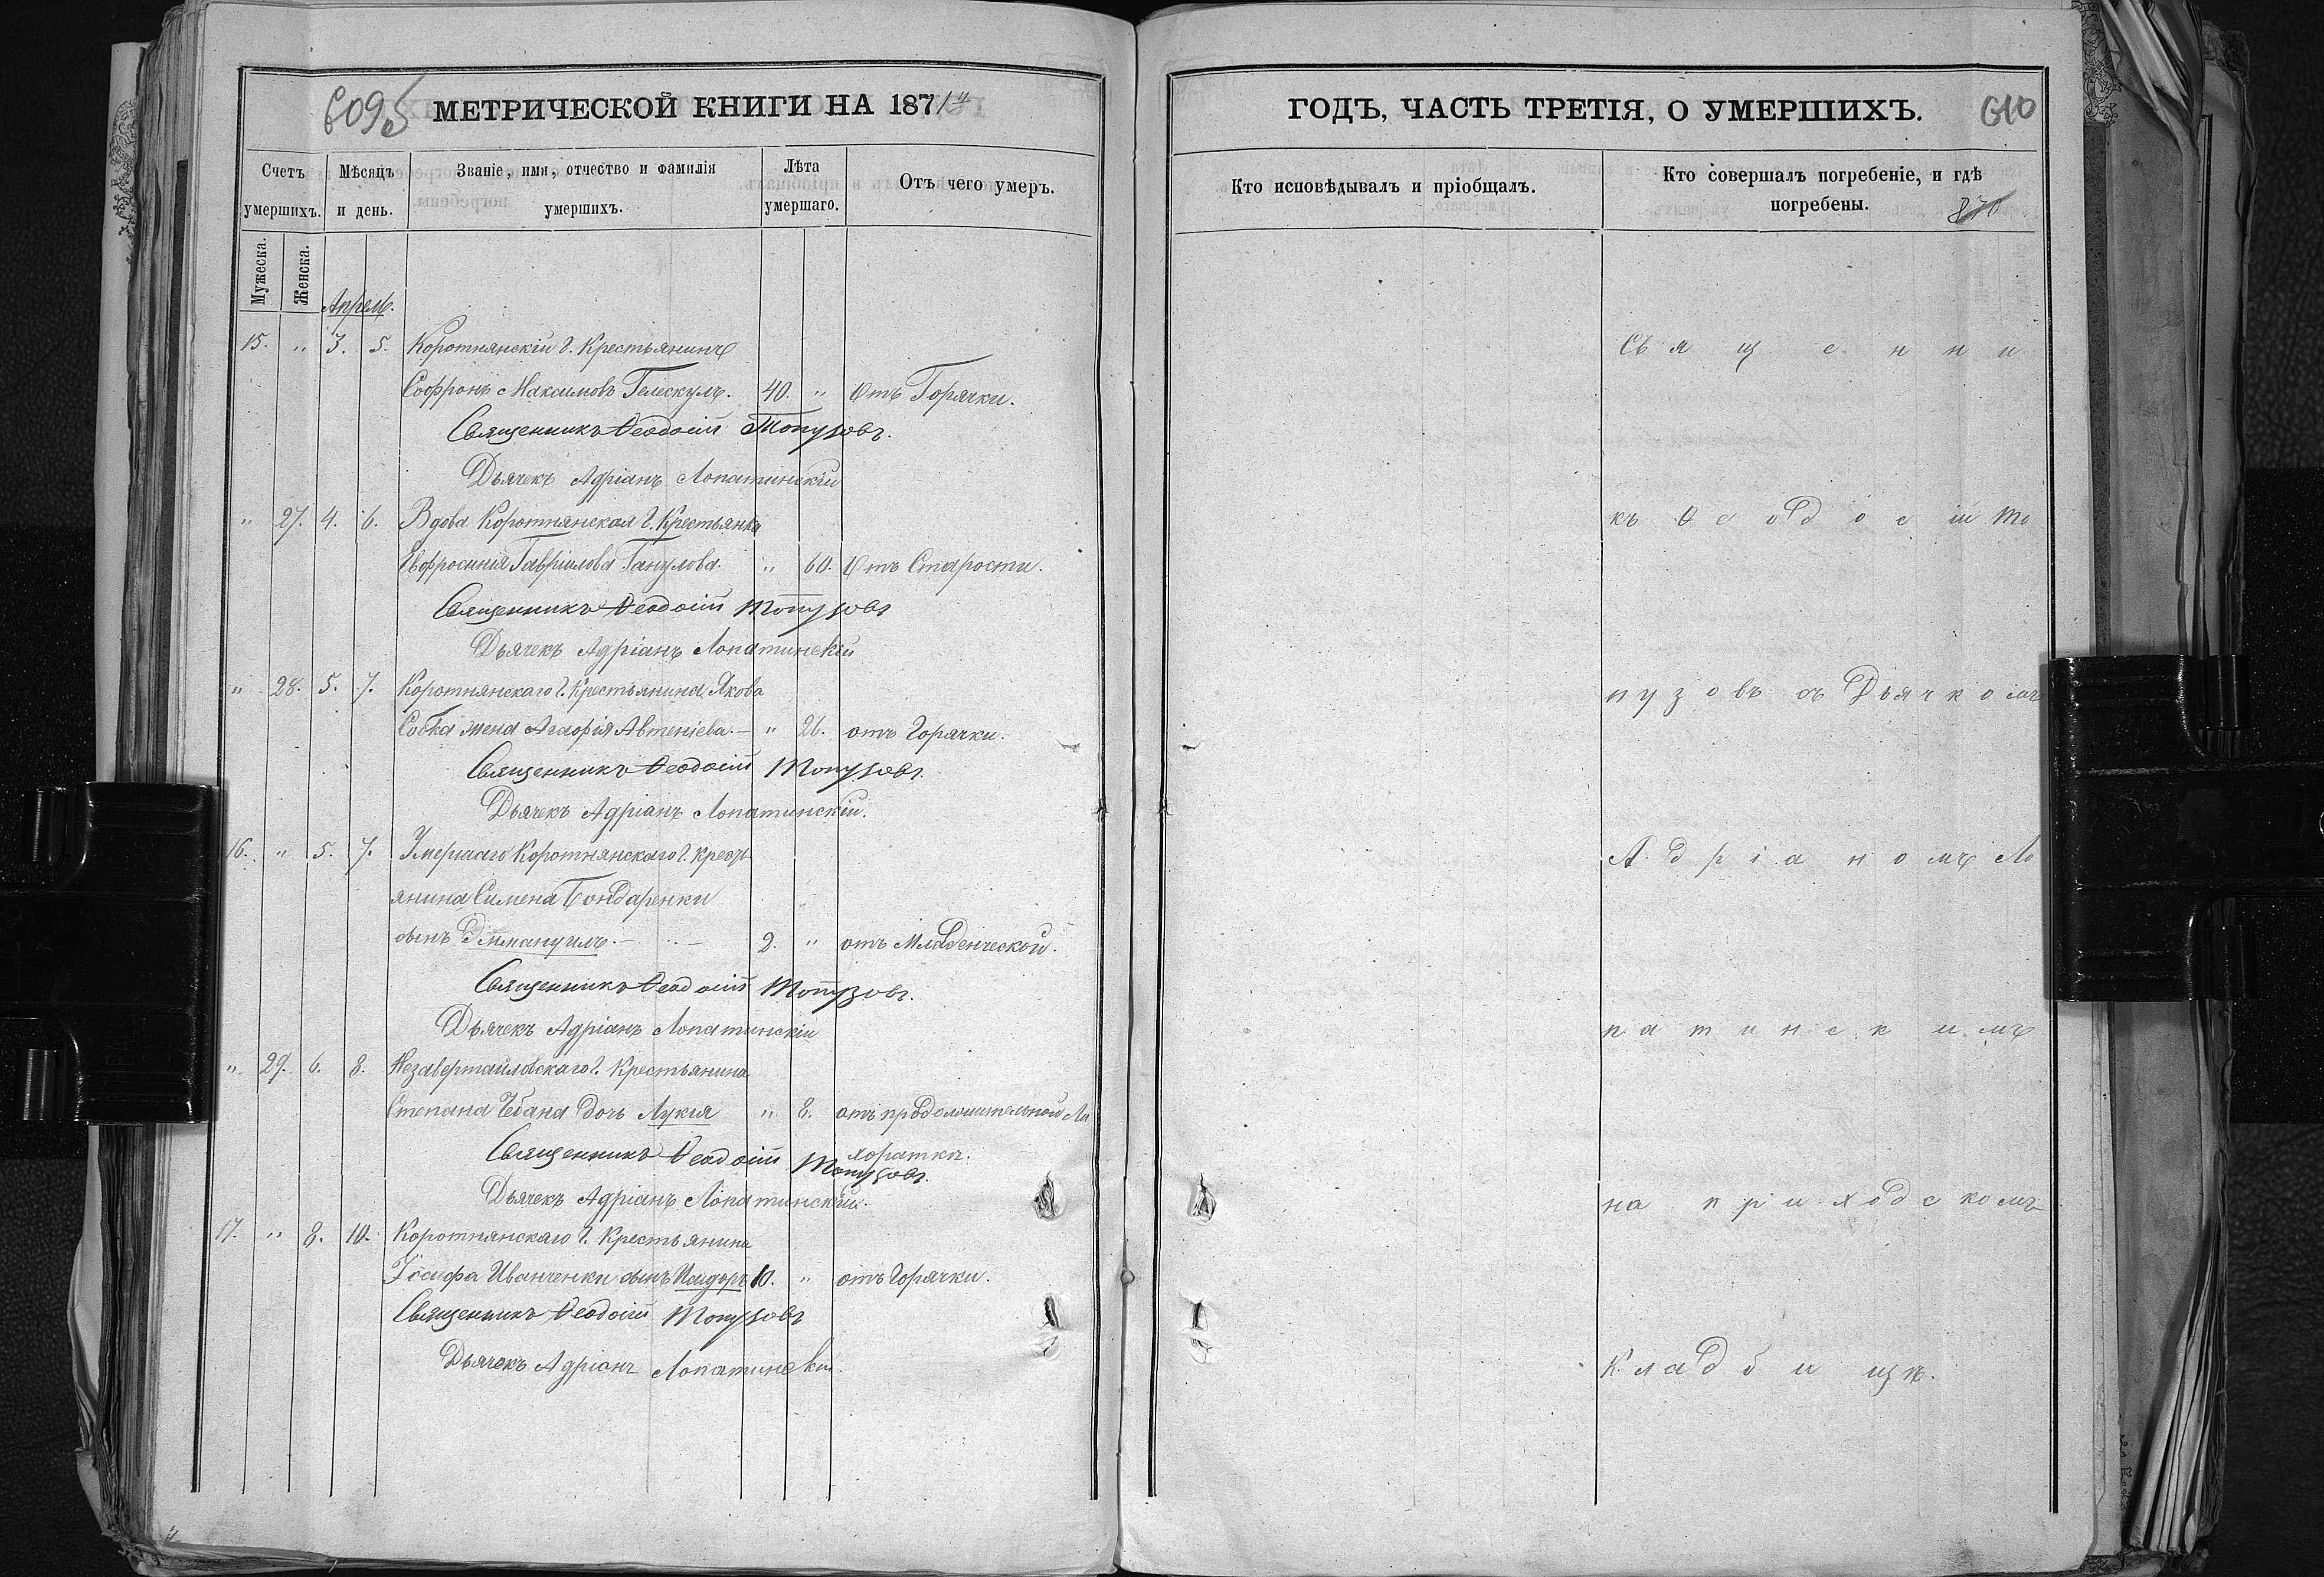 609б МЕТРИЧЕСКОЙ КНИГИ НА 1871й
Счетъ умершихъ.
Мѣсяцъ и день.
Званіе, имя, отчество и фамилія умершихъ.
Лѣта умершаго.
Отъ чего умеръ.
Мужеска.
Женска.
Апрель.
15. " 3. 5. Коротнянскій г. Крестьянинъ
Софронъ Максимовъ Гелескулъ. 40. " Отъ Горячки.
Священникъ Ѳеодосій Топузовъ.
Дьячекъ Адріанъ Лопатинскій
" 27. 4. 6. Вдова Коротнянская г. Крестьянка
Евфросинія Гавріилова Ганулова. " 60. Отъ Старости.
Священникъ Ѳеодосій Топузовъ
Дьячекъ Адріанъ Лопатинскій
" 28. 5. 7. Коротнянскаго г. Крестьянина Якова
Собка жена Агафія Автеніева. — " 26. отъ Горячки.
Священникъ Ѳеодосій Топузовъ
Дьячекъ Адріанъ Лопатинскій.
16. " 5. 7. Умершаго Коротнянскаго г. крест
янина Симена Бондаренки
сынъ Эммануилъ. — 2. " отъ Младенческой.
Священникъ Ѳеодосій Топузовъ.
Дьячекъ Адріанъ Лопатинскій
" 29. 6. 8. Незавертайловскаго г. Крестьянина
Степана Чебана дочь Лукія " 8. отъ продолжительной Ли
хоратки.
Священникъ Ѳеодосій Топузовъ.
Дьячекъ Адріанъ Лопатинскій.
17. " 8. 10. Коротнянскаго г. Крестьянина
Іосифа Иванченки сынъ Исидоръ 10. " отъ Горячки.
Священникъ Ѳеодосій Топузовъ
Дьячекъ Адріанъ Лопатинскій.
ГОДЪ, ЧАСТЬ ТРЕТІЯ, О УМЕРШИХЪ. 610
Кто исповѣдывалъ и пріобщалъ.
Кто совершалъ погребеніе, и гдѣ
погребены. 870
Священни
къ Ѳеодосій То
пузовъ съ Дьячкомъ
Адріаномъ Ло
патинскимъ
на приходскомъ
Кладбищѣ.